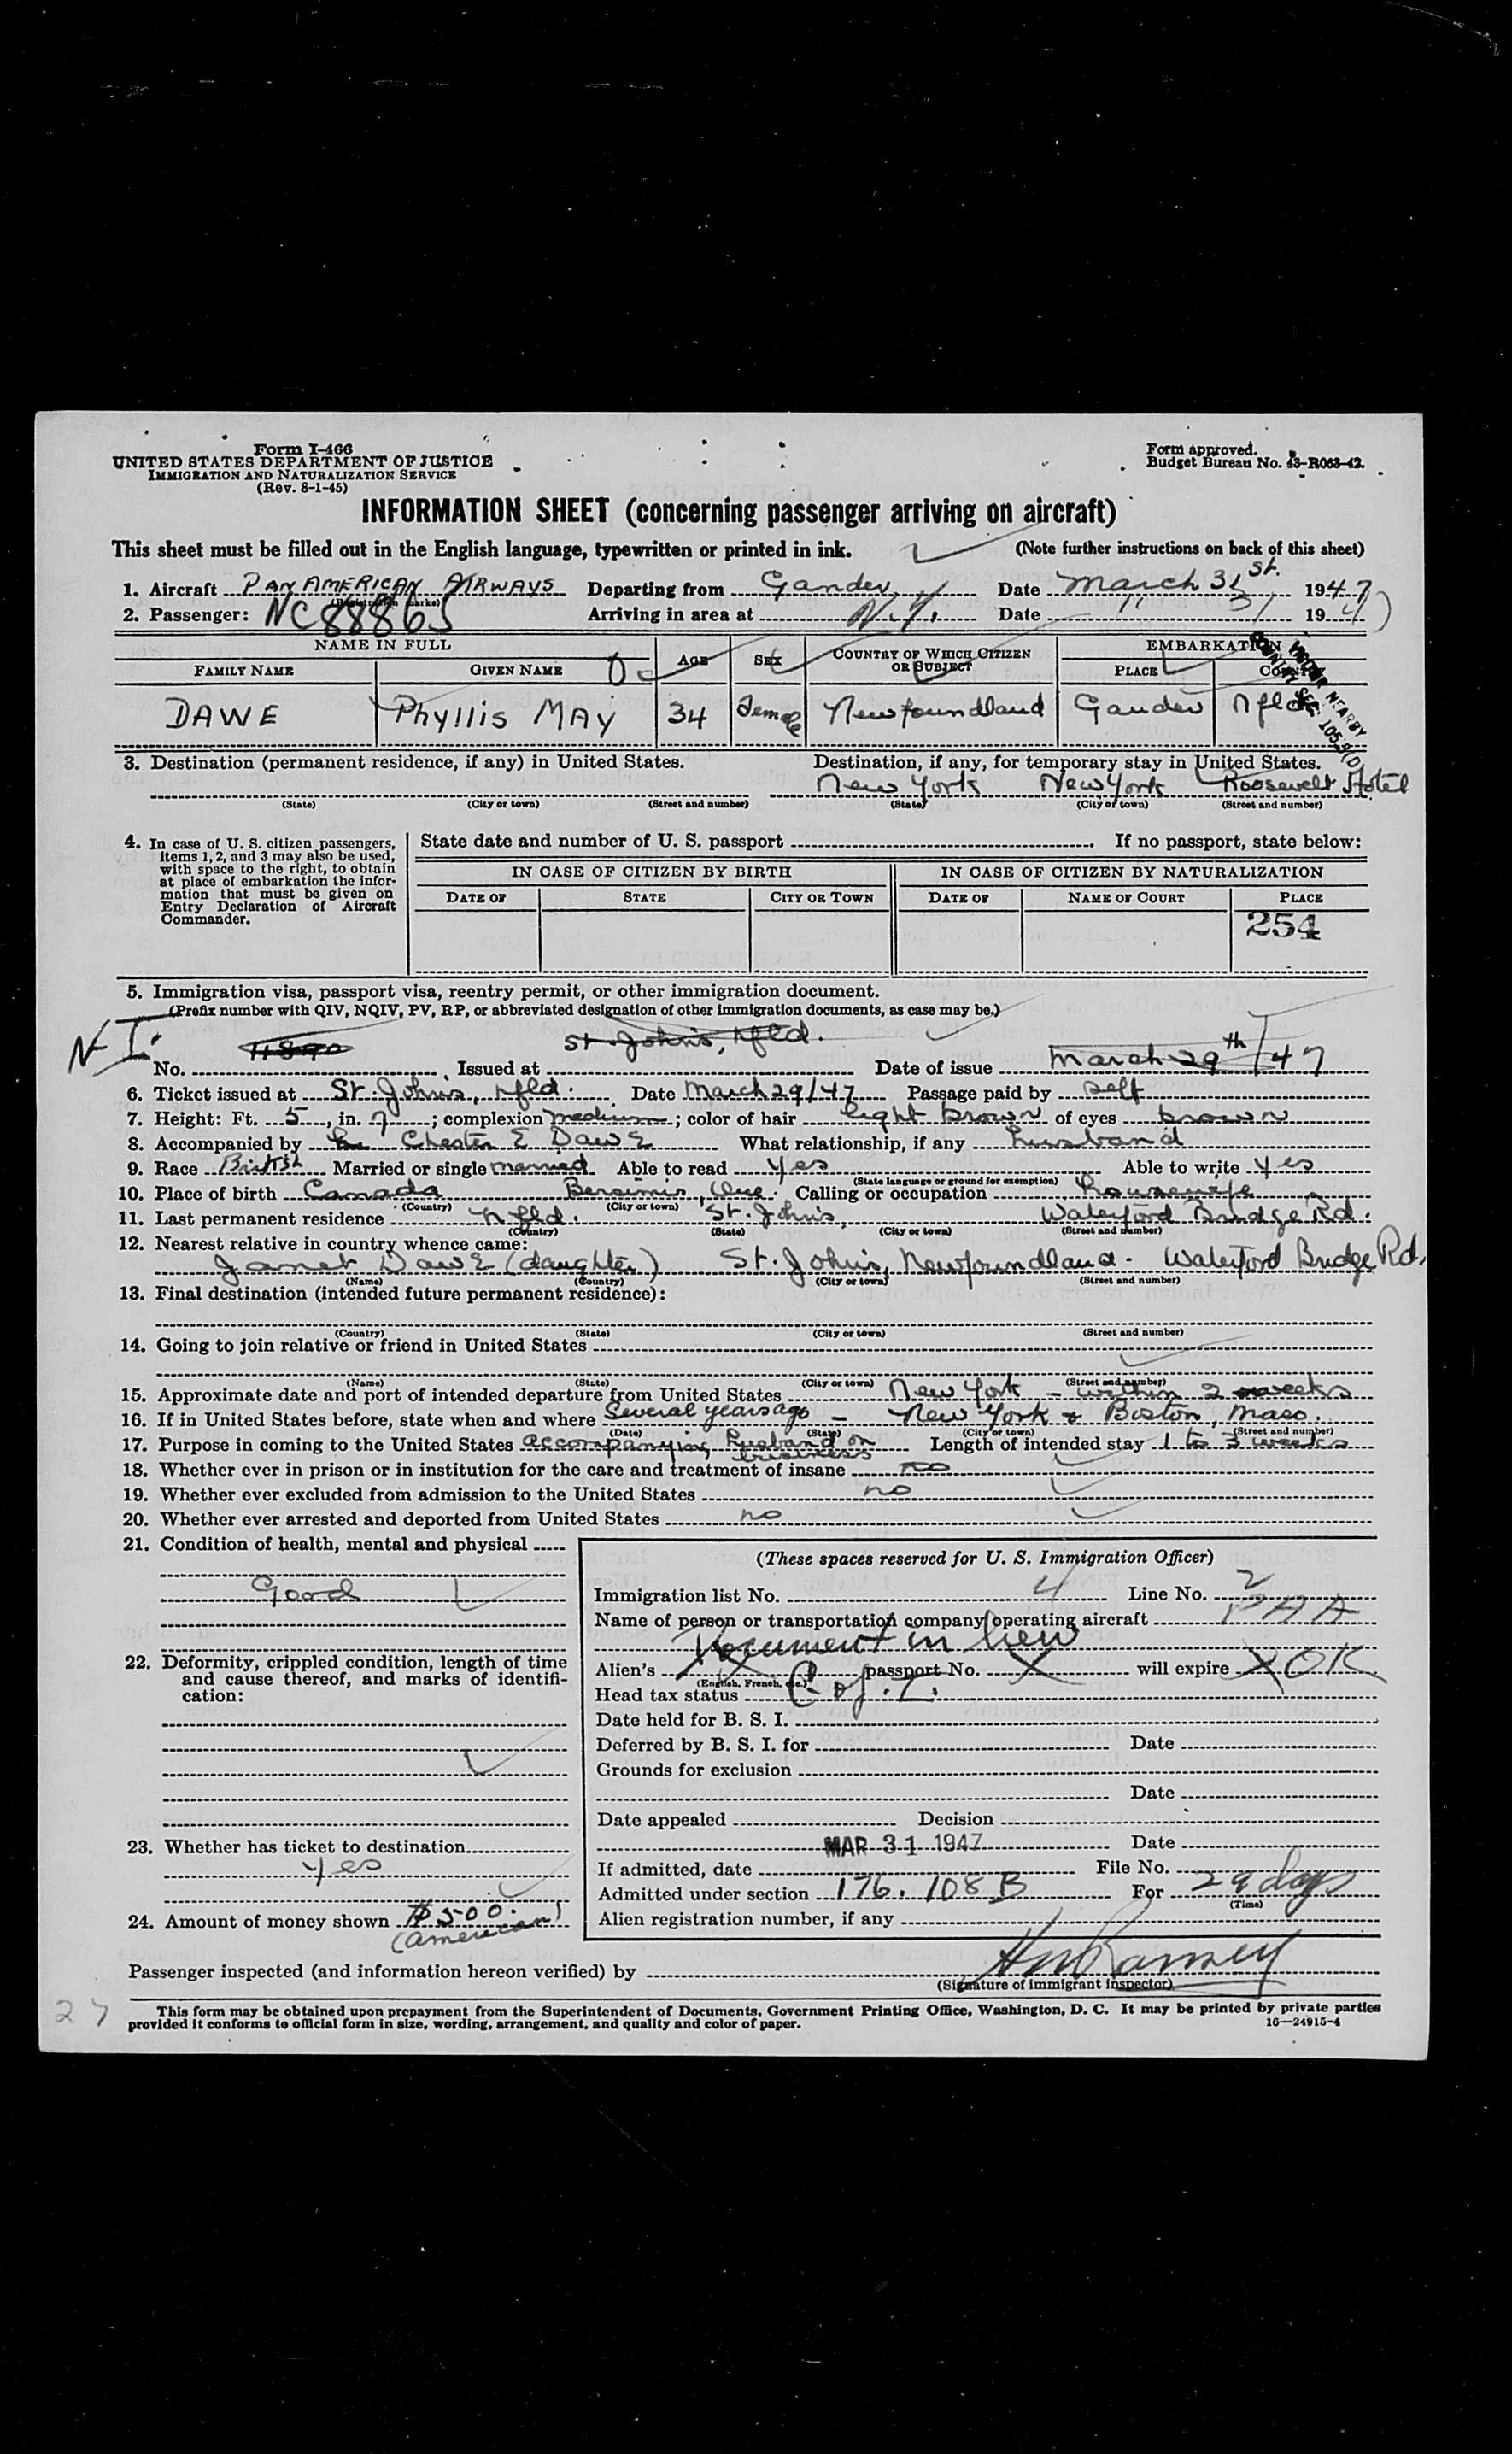 Form I-466
UNITED STATES DEPARTMENT OF JUSTICE
IMMIGRATION AND NATURALIZATION SERVICE
(Rev. 8-1-45)
Form approved.
Budget Bureau No. 43-R063-42.
INFORMATION SHEET (concerning passenger arriving on aircraft)
This sheet must be filled out in the English language, typewritten or printed in ink. (Note further instructions on back of this sheet)
1. Aircraft PAN AMERICAN AIRWAYS Departing from Gander Date March 31st. 1947
(Registration marks)
2. Passenger: NC88865 Arriving in area at N.Y. Date " 31 1947
NAME IN FULL AGE SEX COUNTRY OF WHICH CITIZEN OR SUBJECT EMBARKATION
FAMILY NAME GIVEN NAME PLACE COUNTRY
DAWE Phyllis MAY 34 Female Newfoundland Gander Nfld
3. Destination (permanent residence, if any) in United States. Destination, if any, for temporary stay in United States.
New York New York Roosevelt Hotel
(State) (City or town) (Street and number) (State) (City or town) (Street and number)
4. In case of U. S. citizen passengers, items 1, 2, and 3 may also be used, with space to the right, to obtain at place of embarkation the information that must be given on Entry Declaration of Aircraft Commander.
State date and number of U. S. passport If no passport, state below:
IN CASE OF CITIZEN BY BIRTH IN CASE OF CITIZEN BY NATURALIZATION
DATE OF STATE CITY OR TOWN DATE OF NAME OF COURT PLACE
254
5. Immigration visa, passport visa, reentry permit, or other immigration document.
(Prefix number with QIV, NQIV, PV, RP, or abbreviated designation of other immigration documents, as case may be.)
N I.
No. Issued at St. John's, Nfld. Date of issue March 29th/47
6. Ticket issued at St. John's, Nfld. Date March 29/47 Passage paid by self
7. Height: Ft. 5, in. 7; complexion medium; color of hair light brown of eyes brown
8. Accompanied by Chester E Dawe What relationship, if any husband
9. Race British Married or single married Able to read yes Able to write yes
(State language or ground for exemption)
10. Place of birth Canada Bersimis, Que. Calling or occupation housewife
(Country) (City or town)
11. Last permanent residence Nfld. St. John's, Waterford Bridge Rd.
(Country) (State) (City or town) (Street and number)
12. Nearest relative in country whence came:
Janet Dawe (daughter) St. John's, Newfoundland. Waterford Bridge Rd.
(Name) (Country) (City or town) (Street and number)
13. Final destination (intended future permanent residence):
(Country) (State) (City or town) (Street and number)
14. Going to join relative or friend in United States
(Name) (State) (City or town) (Street and number)
15. Approximate date and port of intended departure from United States New York - within 2 weeks
16. If in United States before, state when and where Several years ago - New York & Boston, Mass.
(Date) (State) (City or town) (Street and number)
17. Purpose in coming to the United States accompanying husband on business Length of intended stay 1 to 3 weeks
18. Whether ever in prison or in institution for the care and treatment of insane no
19. Whether ever excluded from admission to the United States no
20. Whether ever arrested and deported from United States no
21. Condition of health, mental and physical
Good
22. Deformity, crippled condition, length of time and cause thereof, and marks of identification:
23. Whether has ticket to destination
yes
24. Amount of money shown $500.
(american)
(These spaces reserved for U. S. Immigration Officer)
Immigration list No. 4 Line No. 2
Name of person or transportation company operating aircraft PAA
Document in lieu
Alien's X passport No. X will expire X OK
(English, French, etc.)
Head tax status C of I.
Date held for B. S. I.
Deferred by B. S. I. for Date
Grounds for exclusion
Date
Date appealed Decision
MAR 31 1947 Date
If admitted, date File No.
Admitted under section 176.108B For 29 days
(Time)
Alien registration number, if any
Passenger inspected (and information hereon verified) by HM Ramsey
(Signature of immigrant inspector)
27
This form may be obtained upon prepayment from the Superintendent of Documents, Government Printing Office, Washington, D. C. It may be printed by private parties
provided it conforms to official form in size, wording, arrangement, and quality and color of paper.
16—24915-4